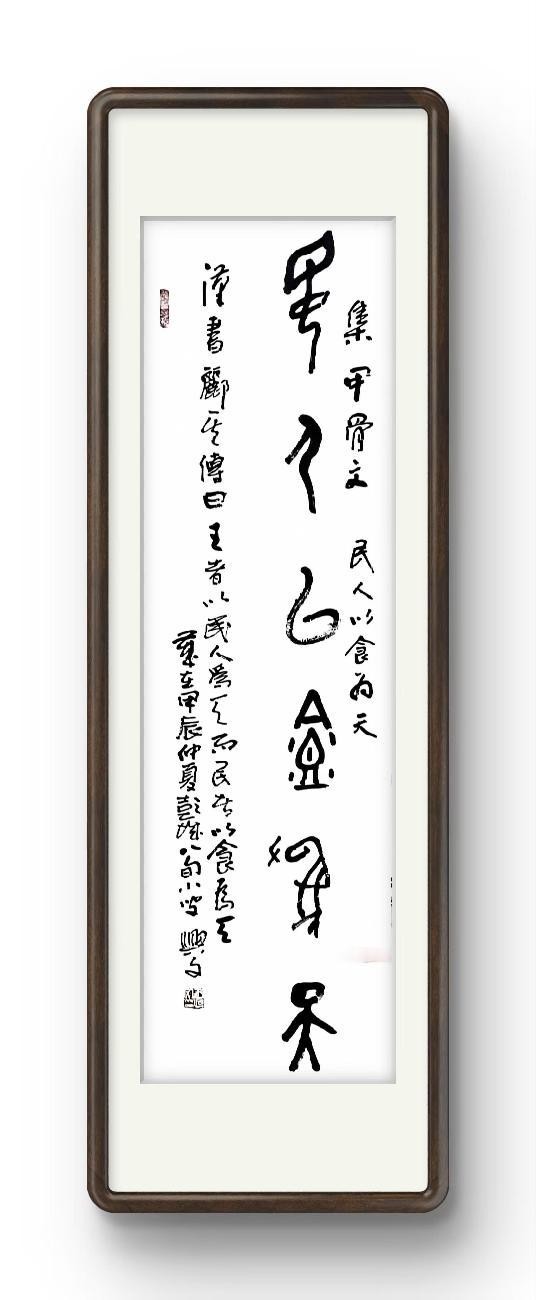 集甲骨文 民人以食为天
民人以食为天
漢書酈食其傳曰王者以民人為天而民者以食為天
歲在甲辰仲夏彭城八旬小叟興文